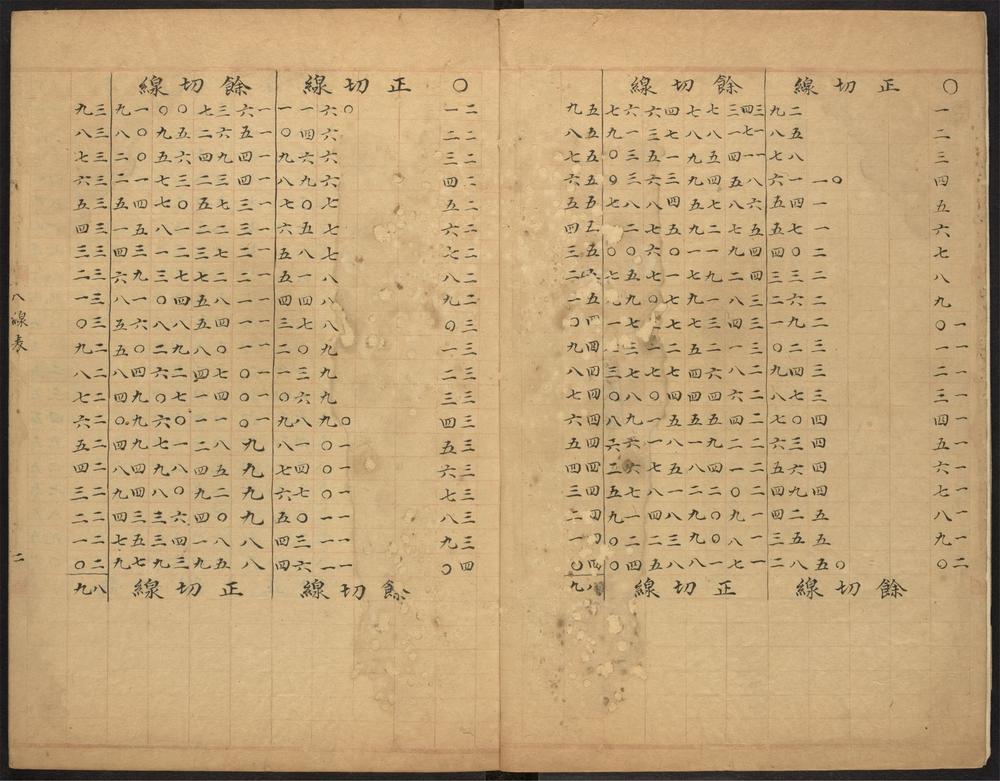 〇 正切線 餘切線
一 二九 三四三七七四六六七 五九
二 五八 一七一八八七三一九 五八
三 八七 一一四五九一五三〇 五七
四 〇一一六 八五九四三六三〇 五六
五 一四五 六八七五四八八七 五五
六 一七五 五七二九五七二一 五四
七 二〇四 四九一一〇六〇〇 五三
八 二三三 四二九七一七五七 五二
九 二六二 三八一九七〇九九 五一
一〇 二九一 三四三七七三七一 五〇
一一 三二〇 三一二五二一三七 四九
一二 三四九 二八六四七七七三 四八
一三 三七八 二六四四四〇八〇 四七
一四 四〇七 二四五五五一九八 四六
一五 四三六 二二九一八一六六 四五
一六 四六五 二一四八五七六二 四四
一七 四九四 二〇二二一八七五 四三
一八 五二四 一九〇九八四一九 四二
一九 五五三 一八〇九三二二〇 四一
二〇 〇五八二 一七一八八五四〇 四〇
餘切線 正切線 八九
〇 正切線 餘切線
二一 〇六一一 一六三七〇〇一九 三九
二二 六四〇 一五六二五九〇八 三八
二三 六六九 一四九四六五〇二 三七
二四 六九八 一四三二三七一二 三六
二五 七二七 一三七五〇七四五 三五
二六 七五六 一三二二一八五一 三四
二七 七八五 一二七三二一三四 三三
二八 八一五 一二二七七三九六 三二
二九 八四四 一一八五四〇一八 三一
三〇 八七三 一一四五八八六五 三〇
三一 九〇二 一一〇八九二〇五 二九
三二 九三一 一〇七四二六四八 二八
三三 九六〇 一〇四一七〇九四 二七
三四 〇九八九 一〇一一〇六九〇 二六
三五 一〇一八 九八二一七九四 二五
三六 一〇四七 九五四八九四八 二四
三七 一〇七六 九二九〇八四九 二三
三八 一一〇五 九〇四六三三四 二二
三九 一一三四 八八一四三五七 二一
四〇 一一六四 八五九三九七九 二〇
餘切線 正切線 八九
八線表
二